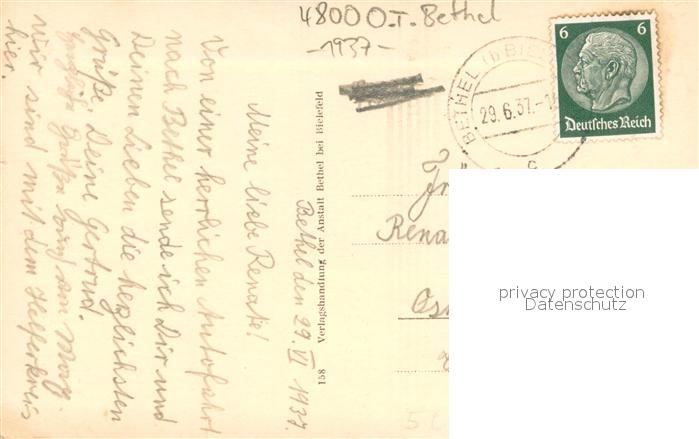 48000 O.T. Bethel
-1937-
BETHEL (b BIEL
29.6.37.-1
c
6 6
Deutsches Reich
Bethel den 29. VI 1937.
Meine liebe Renate!
Von einer herrlichen Autofahrt
nach Bethel sende ich Dir und
Deinen Lieben die herzlichsten
Grüße. Deine Gertrud.
Grüße
wir sind mit dem Helferkreis
hier.
158 Verlagshandlung der Anstalt Bethel bei Bielefeld
Fr
Rena
Os
privacy protection
Datenschutz